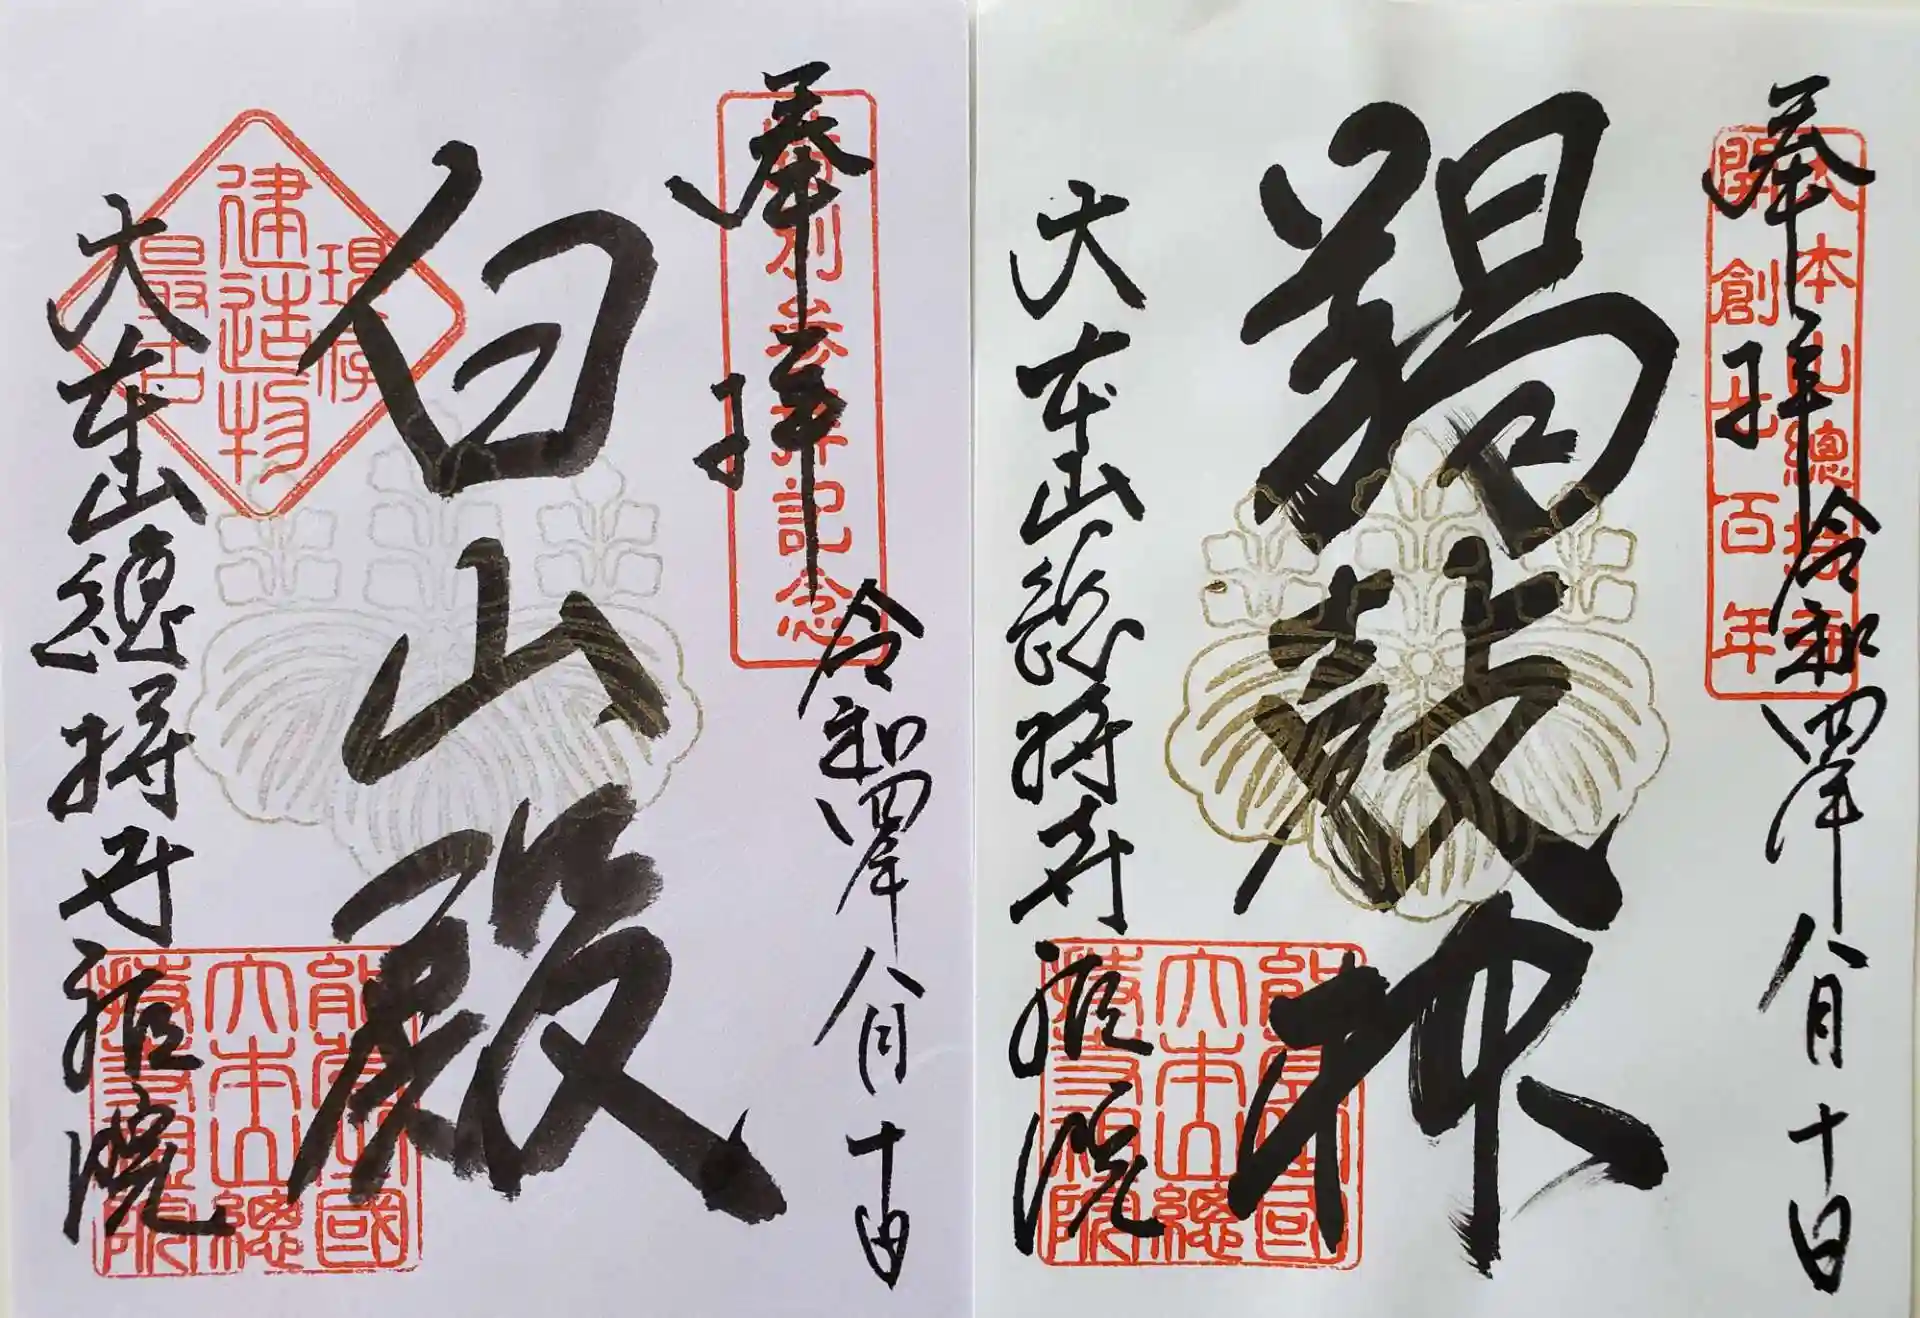 奉拝
大本山總持寺
開創七百年
令和四年八月十日
羯鼓林
大本山総持寺祖院
能登國
大本山總
持寺祖院
奉拝
特別参拝記念
令和四年八月十日
白山殿
現存
建造物
最古
大本山總持寺祖院
能登國
大本山總
持寺祖院